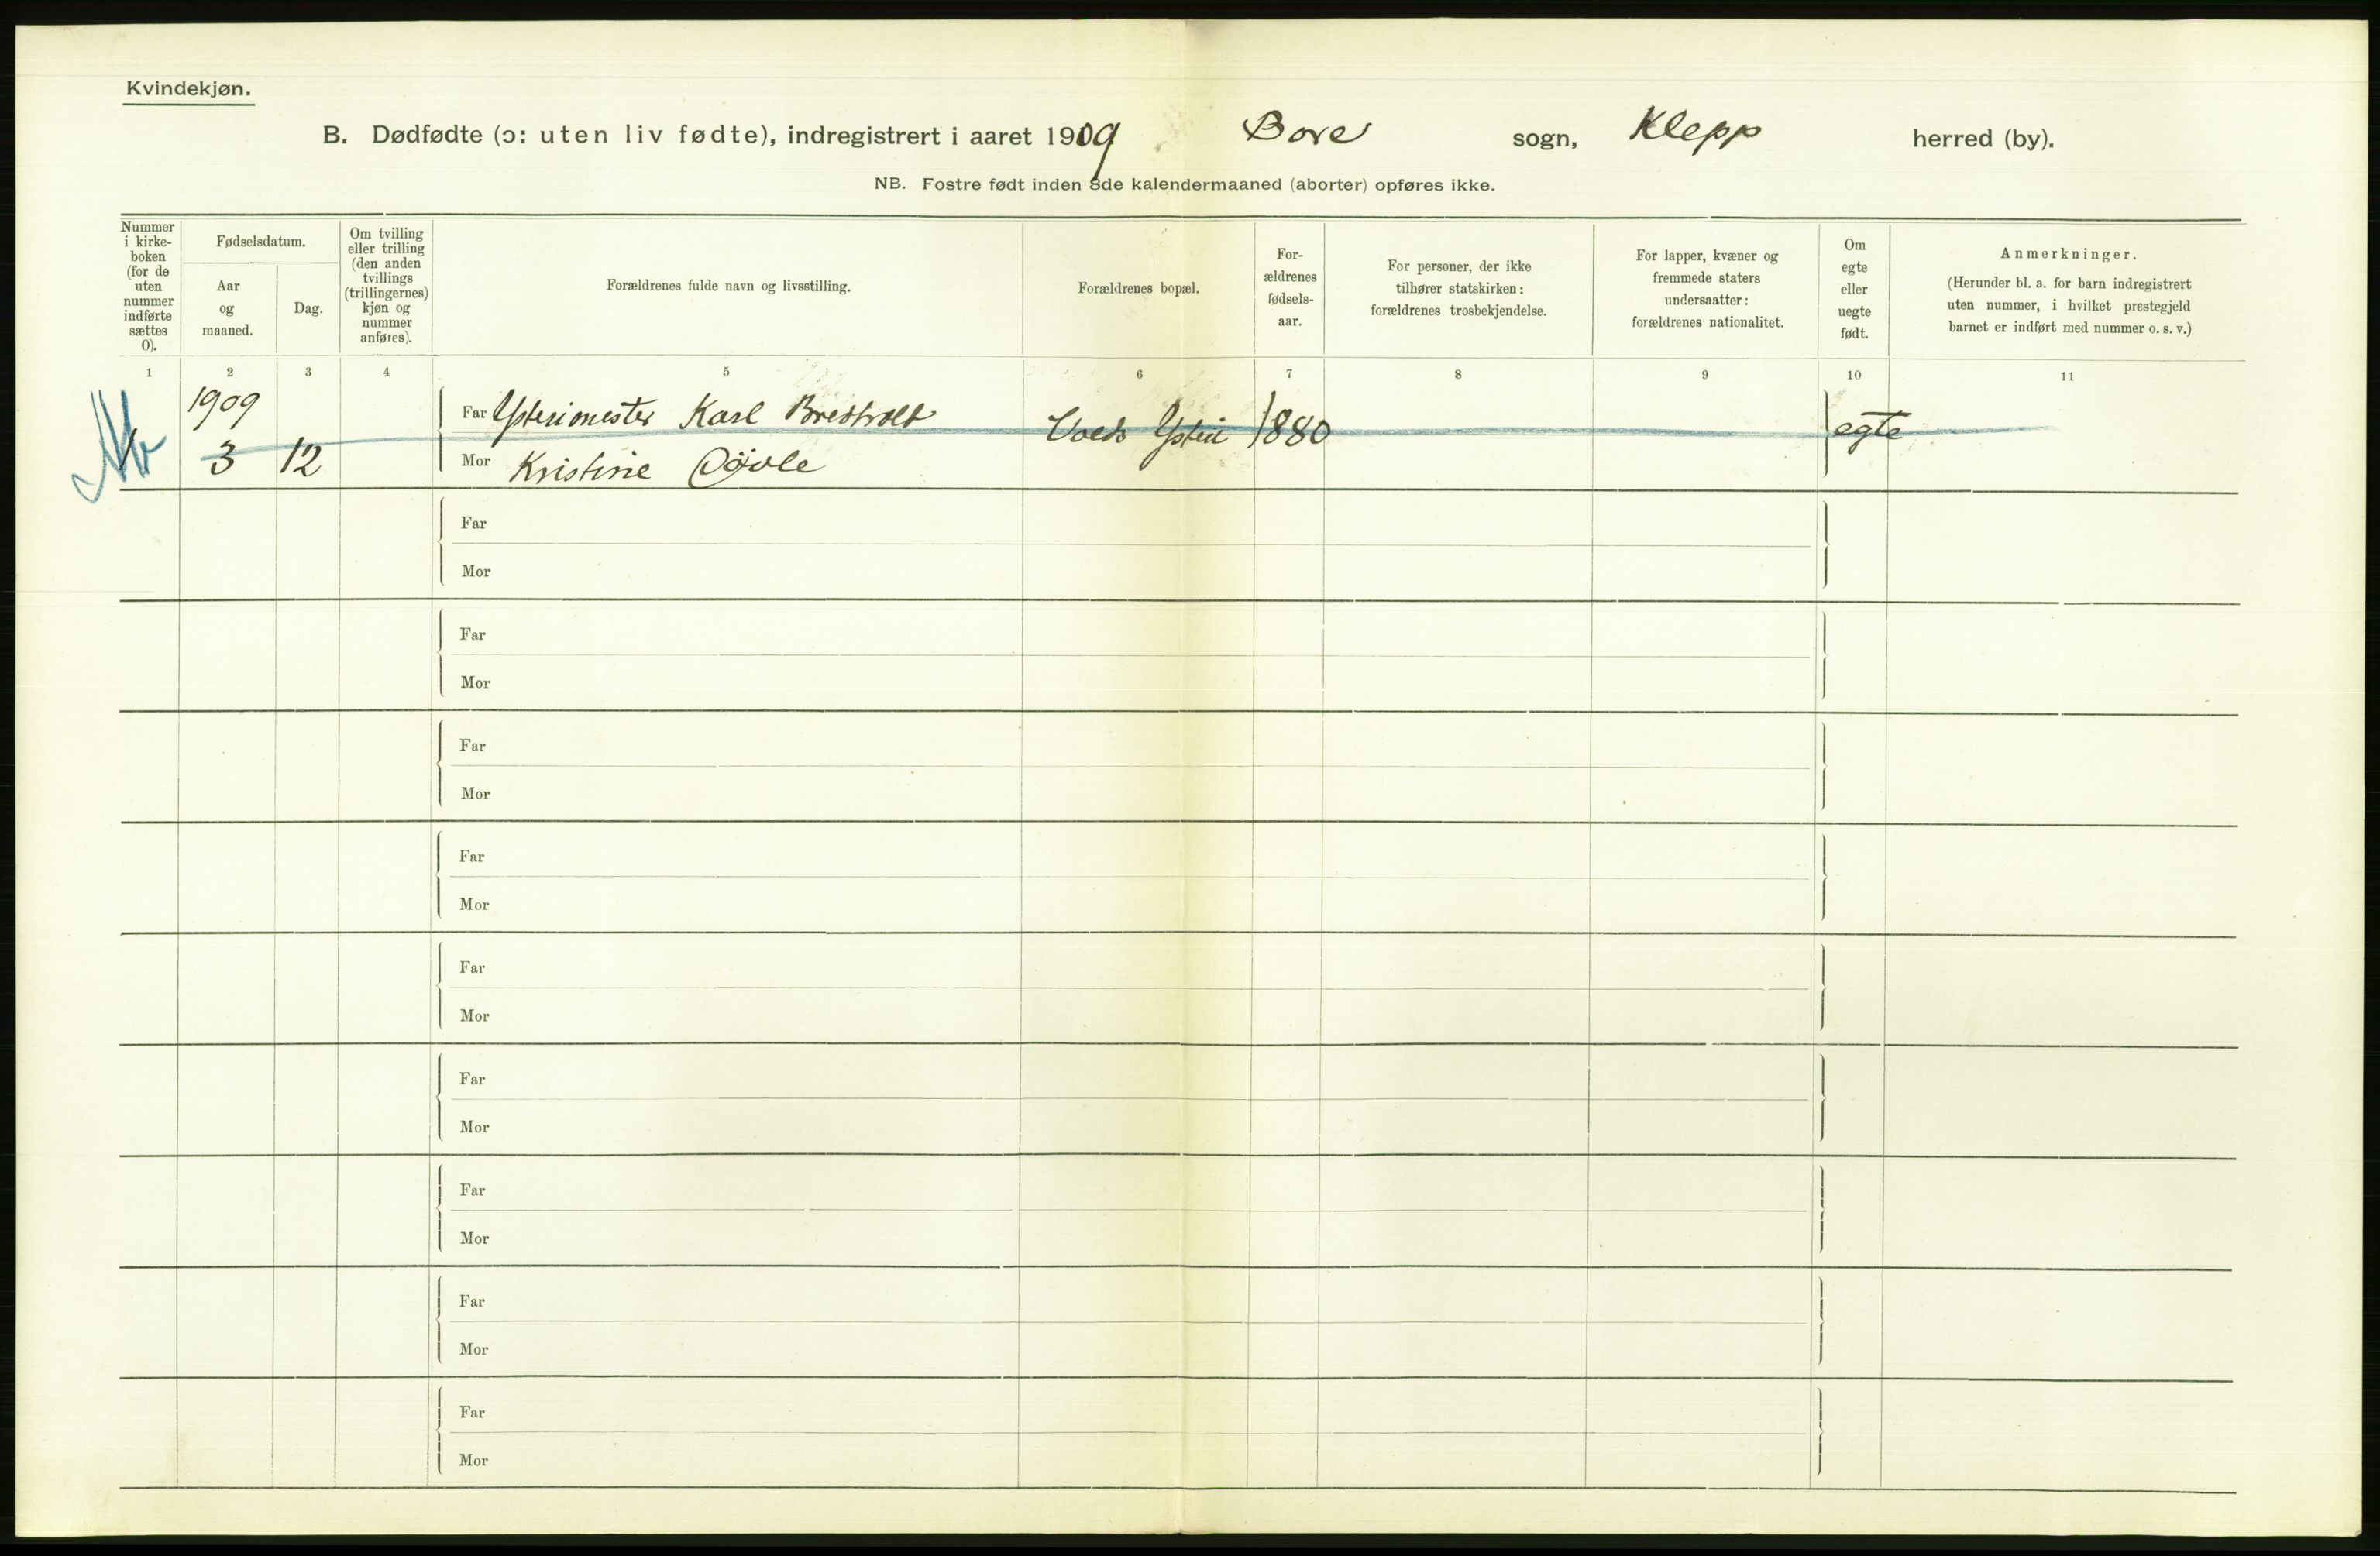 Kvindekjøn.
B. Dødfødte (ɔ: uten liv fødte), indregistrert i aaret 1909 Bore sogn, Klepp herred (by).
NB. Fostre født inden 8de kalendermaaned (aborter) opføres ikke.
Nummer
i kirke-
boken
(for de
uten
nummer
indførte
sættes
0).
Fødselsdatum.
Aar
og
maaned.
Dag.
Om tvilling
eller trilling
(den anden
tvillings
(trillingernes)
kjøn og
nummer
anføres).
Forældrenes fulde navn og livsstilling.
Forældrenes bopæl.
For-
ældrenes
fødsels-
aar.
For personer, der ikke
tilhører statskirken:
forældrenes trosbekjendelse.
For lapper, kvæner og
fremmede staters
undersaatter:
forældrenes nationalitet.
Om
egte
eller
uegte
født.
Anmerkninger.
(Herunder bl. a. for barn indregistrert
uten nummer, i hvilket prestegjeld
barnet er indført med nummer o. s. v.)
1 2 3 4 5 6 7 8 9 10 11
1909
Far Ysterimester Karl
1880
egte
1 3 12
Mor Kristine
Far
Mor
Far
Mor
Far
Mor
Far
Mor
Far
Mor
Far
Mor
Far
Mor
Far
Mor
Far
Mor